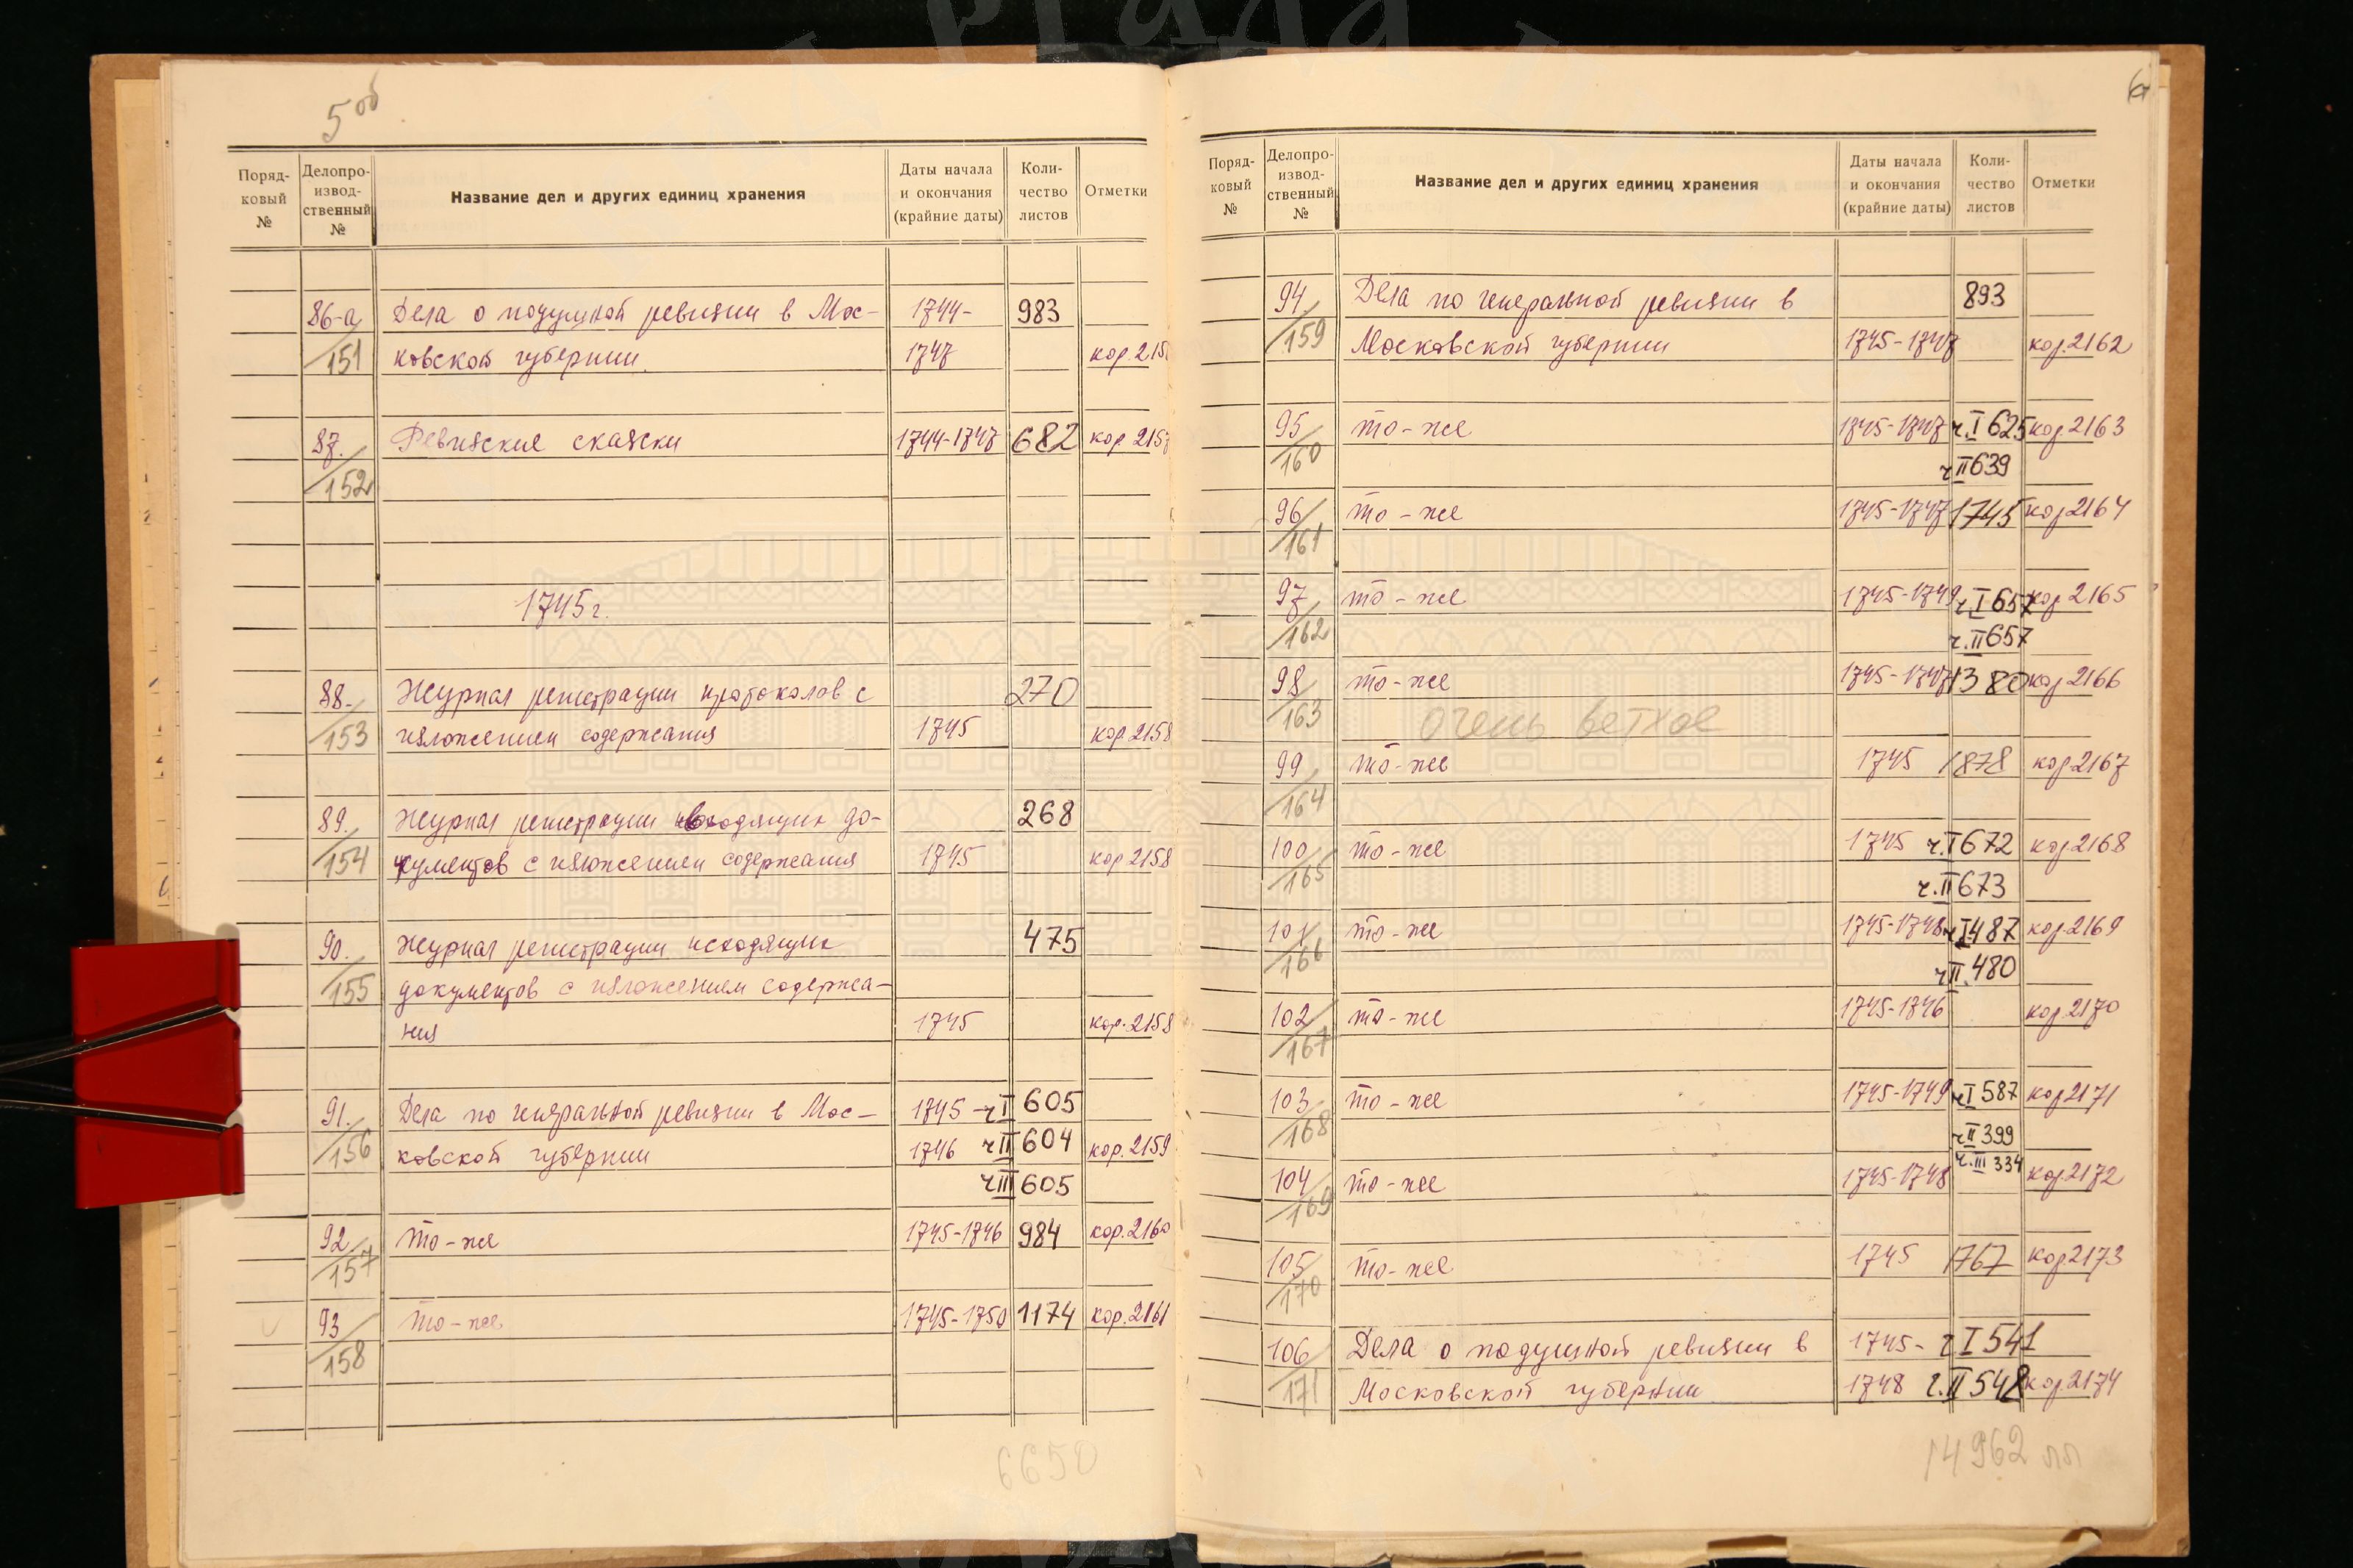 5 об
Поряд-
ковый
№
Делопро-
извод-
ственный
№
Название дел и других единиц хранения
Даты начала
и окончания
(крайние даты)
Коли-
чество
листов
Отметки
86-а Дела о подушной ревизии в Мос- 1744- 983
151 ковской губернии. 1747 кор. 215
87. Ревизские сказки 1744-1747 682 кор 2157
152
1745 г.
88. Журнал регистрации протоколов с 270
153 изложением содержания 1745 кор 2158
89. Журнал регистрации входящих до- 268
154 кументов с изложением содержания 1745 кор 2158
90. Журнал регистрации исходящих 475
155 документов с изложением содержа-
ния 1745 кор. 2158
91. Дела по генеральной ревизии в Мос- 1745 - ч I 605
156 ковской губернии 1746 ч II 604 кор. 2159
ч III 605
92. то-же 1745-1746 984 кор. 2160
157
93 то-же 1745-1750 1174 кор. 2161
158
6650
6
Поряд-
ковый
№
Делопро-
извод-
ственный
№
Название дел и других единиц хранения
Даты начала
и окончания
(крайние даты)
Коли-
чество
листов
Отметки
94 Дела по генеральной ревизии в 893
159 Московской губернии 1745-1747 кор. 2162
95 то-же 1745-1747 ч. I 625 кор 2163
160 ч II 639
96 то-же 1745-1747 1745 кор 2164
161
97 то-же 1745-1749 ч. I 657 кор 2165
162 ч. II 657
98 то-же 1745-1747 1380 кор 2166
163 очень ветхое
99 то-же 1745 1878 кор 2167
164
100 то-же 1745 ч. I 672 кор 2168
165 ч. II 673
101 то-же 1745-1748 ч I 487 кор. 2169
166 ч II. 480
102 то-же 1745-1746 кор 2170
167
103 то-же 1745-1749 ч I 587 кор 2171
168 ч II 399
ч. III 334
104 то-же 1745-1748 кор. 2172
169
105 то-же 1745 1767 кор 2173
170
106 Дела о подушной ревизии в 1745- ч I 541
171 Московской губернии 1748 ч. II 548 кор 2174
14962 лл